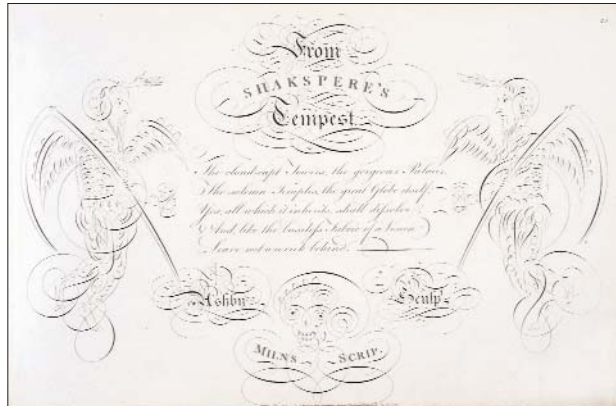 From
SHAKSPERE'S
Tempest.
The cloud-capt Towers, the gorgeous Palaces,
The solemn Temples, the great Globe itself,
Yea, all which it inherits, shall dissolve;
And, like the baseless Fabric of a Vision
Leave not a wreck behind.
Ashby Sculp
MILNS SCRIP.